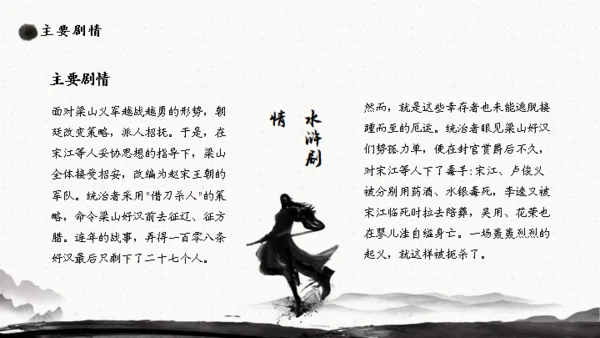 主要剧情
主要剧情
面对梁山义军越战越勇的形势，朝
廷改变策略，派人招抚。于是，在
宋江等人妥协思想的指导下，梁山
全体接受招安，改编为赵宋王朝的
军队。统治者采用"借刀杀人"的策
略，命令梁山好汉前去征辽、征方
腊。连年的战事，弄得一百零八条
好汉最后只剩下了二十七个人。
水浒剧
情
然而，就是这些幸存者也未能逃脱接
踵而至的厄运。统治者眼见梁山好汉
们势孤力单，便在封官赏爵后不久，
对宋江等人下了毒手:宋江、卢俊义
被分别用药酒、水银毒死，李逵又被
宋江临死时拉去陪葬，吴用、花荣也
在蓼儿洼自缢身亡。一场轰轰烈烈的
起义，就这样被扼杀了。